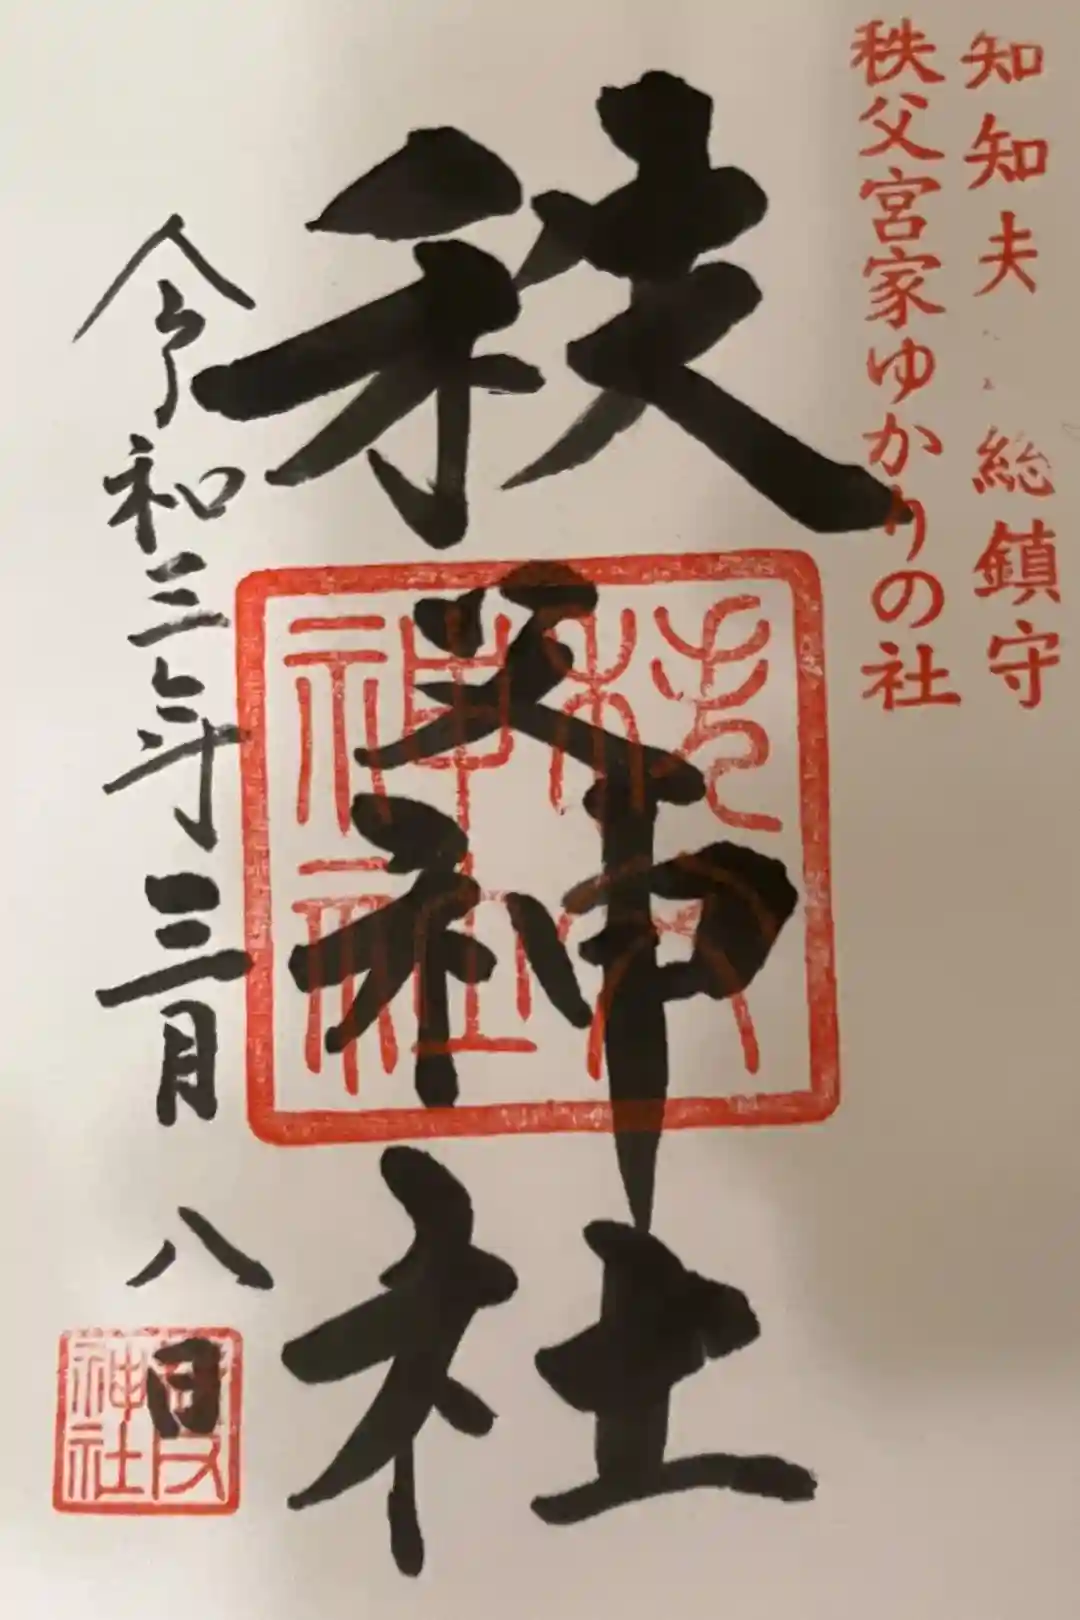 知知夫総鎮守
秩父宮家ゆかりの社
秩父神社
秩父神社
令和三年三月八日